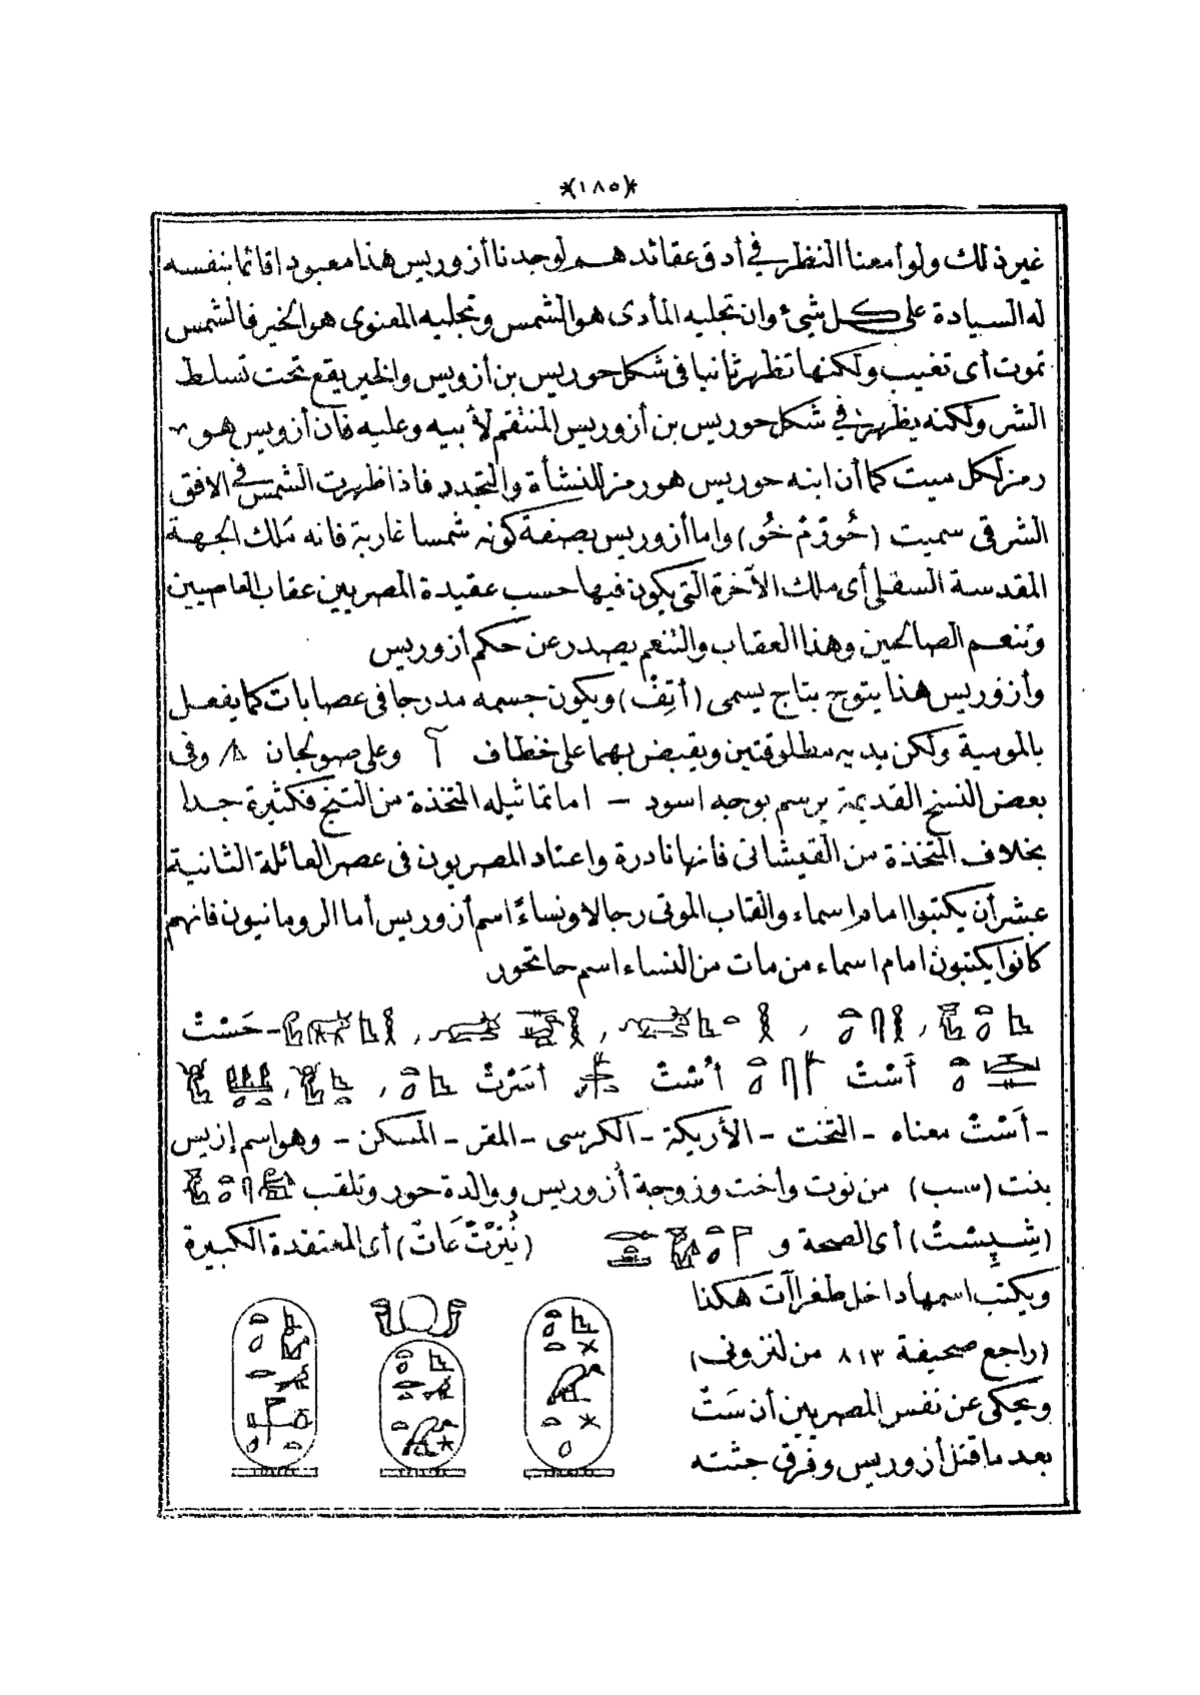 *(١٨٥)*
غير ذلك ولو أمعنا النظر في أدق عقائدهم لوجدنا أزوريس هذا معبودا قائما بنفسه
له السيادة على كل شيء وان تجليه المأدى هو الشمس وتجليه المعنوى هو الخير فالشمس
تموت أى تغيب ولكنها تظهر ثانيا فى شكل حوريس بن أزويس والخير يقع تحت تسلط
الشر ولكنه يظهر في شكل حوريس بن أزوريس المنتقم لأبيه وعليه فان أزويس هو
رمز لكل ميت كما أن ابنه حوريس هو رمز للنشأة والتجدد فاذا ظهرت الشمس في الافق
الشرقى سميت (حُورْمْ خُو) واما أزوريس بصفة كونه شمسا غاربة فانه ملك الجهة
المقدسة السفلى أى ملك الآخرة التى يكون فيها حسب عقيدة المصريين عقاب العاصيين
وتنعم الصالحين وهذا العقاب والتنعم يصدر عن حكم أزوريس
وأزوريس هذا يتوج بتاج يسمى (أتِفْ) ويكون جسمه مدرجا فى عصابات كما يفعل
بالمومية ولكن يديه مطلوقتين ويقبض بهما على خطاف وعلى صولجان وفى
بعض النسخ القديمة يرسم بوجه اسود – اما تماثيله المتخذة من التبج فكثيرة جدا
بخلاف المتخذة من القيشانى فانها نادرة واعتاد المصريون فى عصر العائلة الثانية
عشر أن يكتبوا امام اسماء والقاب الموتى رجالا ونساءً اسم أزوريس أما الرومانيون فانهم
كانوا يكتبون امام اسماء من مات من النساء اسم حاتحور
، ، ، ، - حَسْتْ
أَسْتْ أُسْتْ أسَرْتْ ، ،
- أسْتْ معناه - التخت - الأريكة - الكرسى - المقر - المسكن - وهو اسم إزيس
بنت (سب) من نوت واخت وزوجة أزوريس ووالدة حور وتلقب
(شِپِسْتْ) أى الصحة و (نُتِرْتْ عَاتْ) أى المعتقدة الكبيرة
ويكتب اسمها داخل طغرا آت هكذا
(راجع صحيفة ٨١٣ من لنزونى)
ويحكى عن نفس المصريين أن سَتْ
بعد ما قتل أزوريس وفرق جثته